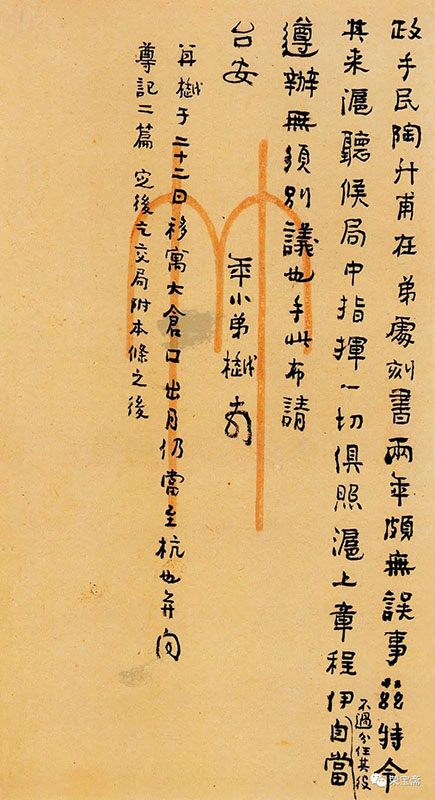 政手民陶升甫在弟處刻書兩年頗無誤事茲特令
其來滬聽候局中指揮一切俱照滬上章程伊自當
不過分任其役
遵辦無須別議也手此布請
台安
年小弟樾頓
再樾于二十二日移寓大倉口出月仍當至杭也并聞
尊記二篇 定後乞交局附本條之後
榮宝斋